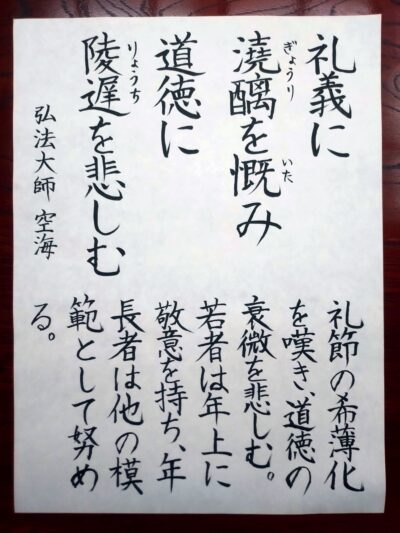 礼義に
澆醨を慨み
ぎょうり
いた
道徳に
陵遅を悲しむ
りょうち
弘法大師 空海
礼節の希薄化
を嘆き、道徳の
衰微を悲しむ。
若者は年上に
敬意を持ち、年
長者は他の模
範として努め
る。